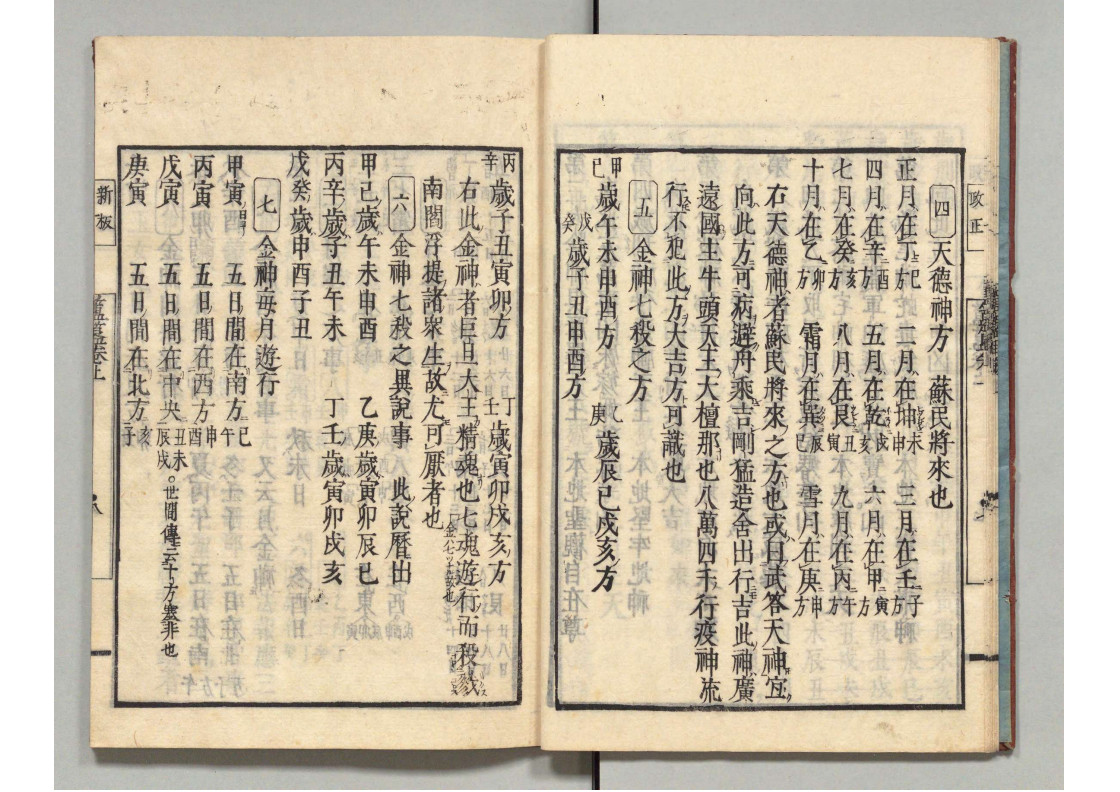 四 天德神方 蘇民將來也
正月在丁巳方 二月在坤未申方 三月在壬子方
四月在辛酉方 五月在乾戌亥方 六月在甲寅方
七月在癸亥方 八月在艮丑寅方 九月在丙午方
十月在乙卯方 霜月在巽辰巳方 雪月在庚申方
右天德神者蘇民將來之方也或曰武答天神宜
向此方可病避舟乘吉剛猛造舍出行吉此神廣
遠國主牛頭天王大檀那也八萬四千行疫神流
行不犯此方大吉方可識也
五 金神七殺之方
甲己歲午未申酉方 乙庚歲辰巳戌亥方
戊癸歲子丑申酉方
丙辛歲子丑寅卯方 丁壬歲寅卯戌亥方
右此金神者巨旦大王精魂也七魂遊行而殺戮
南閻浮提諸衆生故尤可厭者也
六 金神七殺之異說事 此說曆出
甲己歲午未申酉 乙庚歲寅卯辰巳
丙辛歲子丑午未 丁壬歲寅卯戌亥
戊癸歲申酉子丑
七 金神每月遊行
甲寅酉 五日間在南方巳午
丙寅 五日間在西方申酉
戊寅 五日間在中央丑未辰戌。世間傳云十方塞非也
庚寅 五日間在北方亥子
改正
新板